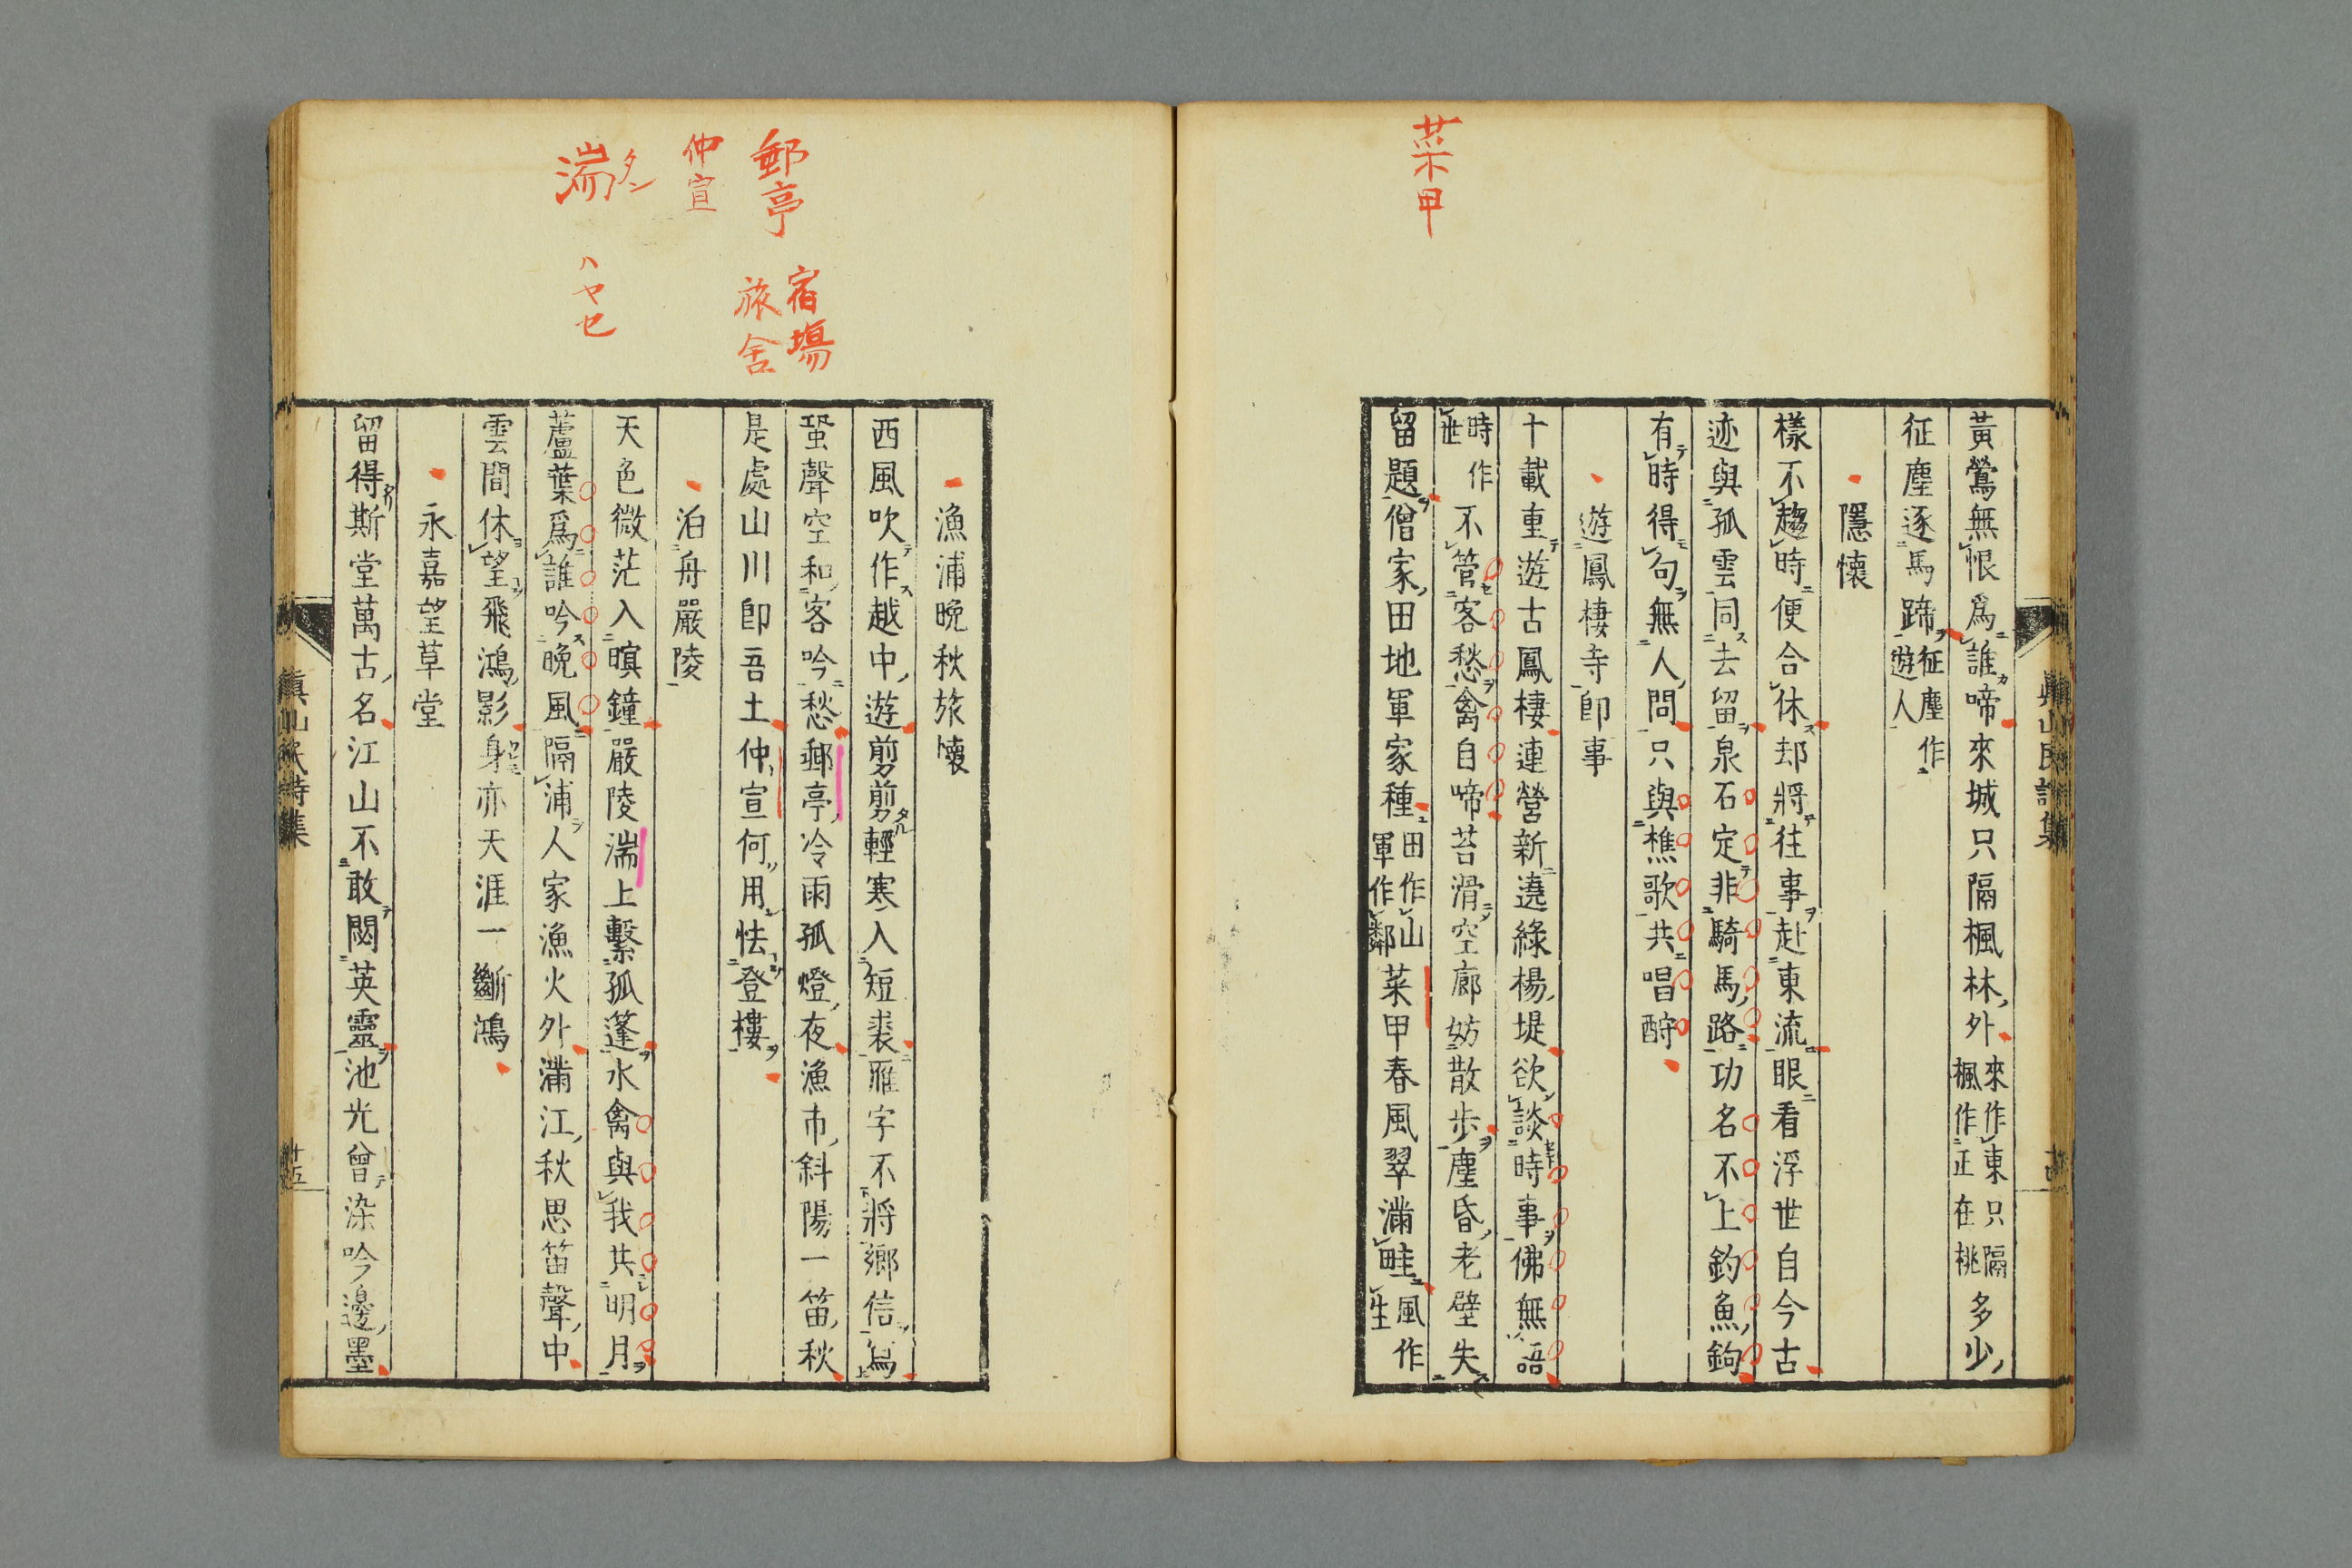 菜甲
黃鶯無恨爲誰啼來城只隔楓林外來作東只隔楓作正在桃多少
征塵逐馬蹄征塵作遊人
隱懷
樣不趨時便合休却將往事赴東流眼看浮世自今古
迹與孤雲同去留泉石定非騎馬路功名不上釣魚鉤
有時得句無人問只與樵歌共唱酧
遊鳳棲寺卽事
十載重遊古鳳棲連營新遶綠楊堤欲談時事佛無語
時作世不管客愁禽自啼苔滑空廊妨散歩塵昏老壁失
留題僧家田地軍家種田作山軍作鄰菜甲春風翠滿畦風作生
眞山民詩集
郵亭
宿場
旅舍
仲宣
湍タン
ハヤセ
漁浦晚秋旅懷
西風吹作越中遊剪剪輕寒入短裘雁字不將鄉信寫
蛩聲空和客吟愁郵亭冷雨孤燈夜漁市斜陽一笛秋
是處山川卽吾土仲宣何用怯登樓
泊舟嚴陵
天色微茫入暝鐘嚴陵湍上繫孤篷水禽與我共明月
蘆葉爲誰吟晚風隔浦人家漁火外滿江秋思笛聲中
雲間休望飛鴻影身亦天涯一斷鴻
永嘉望草堂
留得斯堂萬古名江山不敢閟英靈池光曾染吟邊墨
眞山民詩集
十五